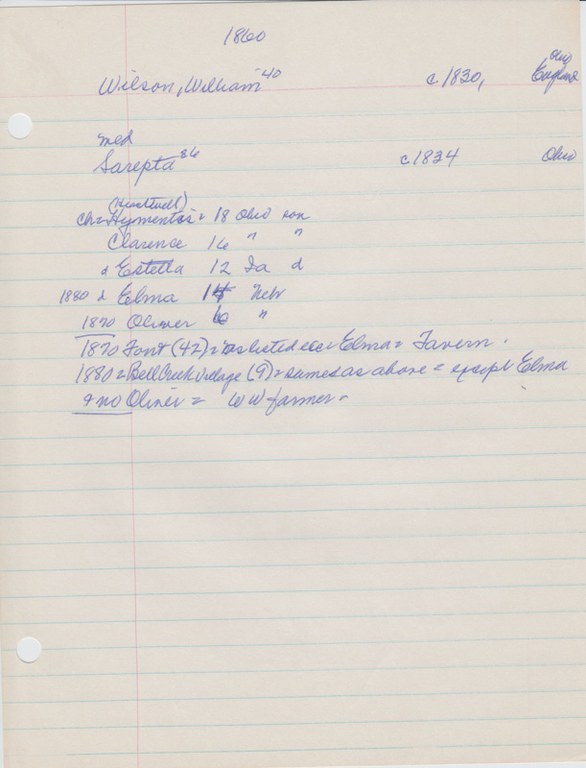 1860
Ohio
Wilson, William 40 c 1830, England
med
Sarepta 36 c 1834 Ohio
ch = 18 Ohio son
Clarence 16 " "
d Estella 12 Ia d
1880 d Elma 14 Nebr
1870 Oliver 6 "
1870 Font (42) = as listed exc = Elma = Tavern.
1880 = Bell Creek Village (9) = same as above = except Elma
& no Oliver = WW farmer -